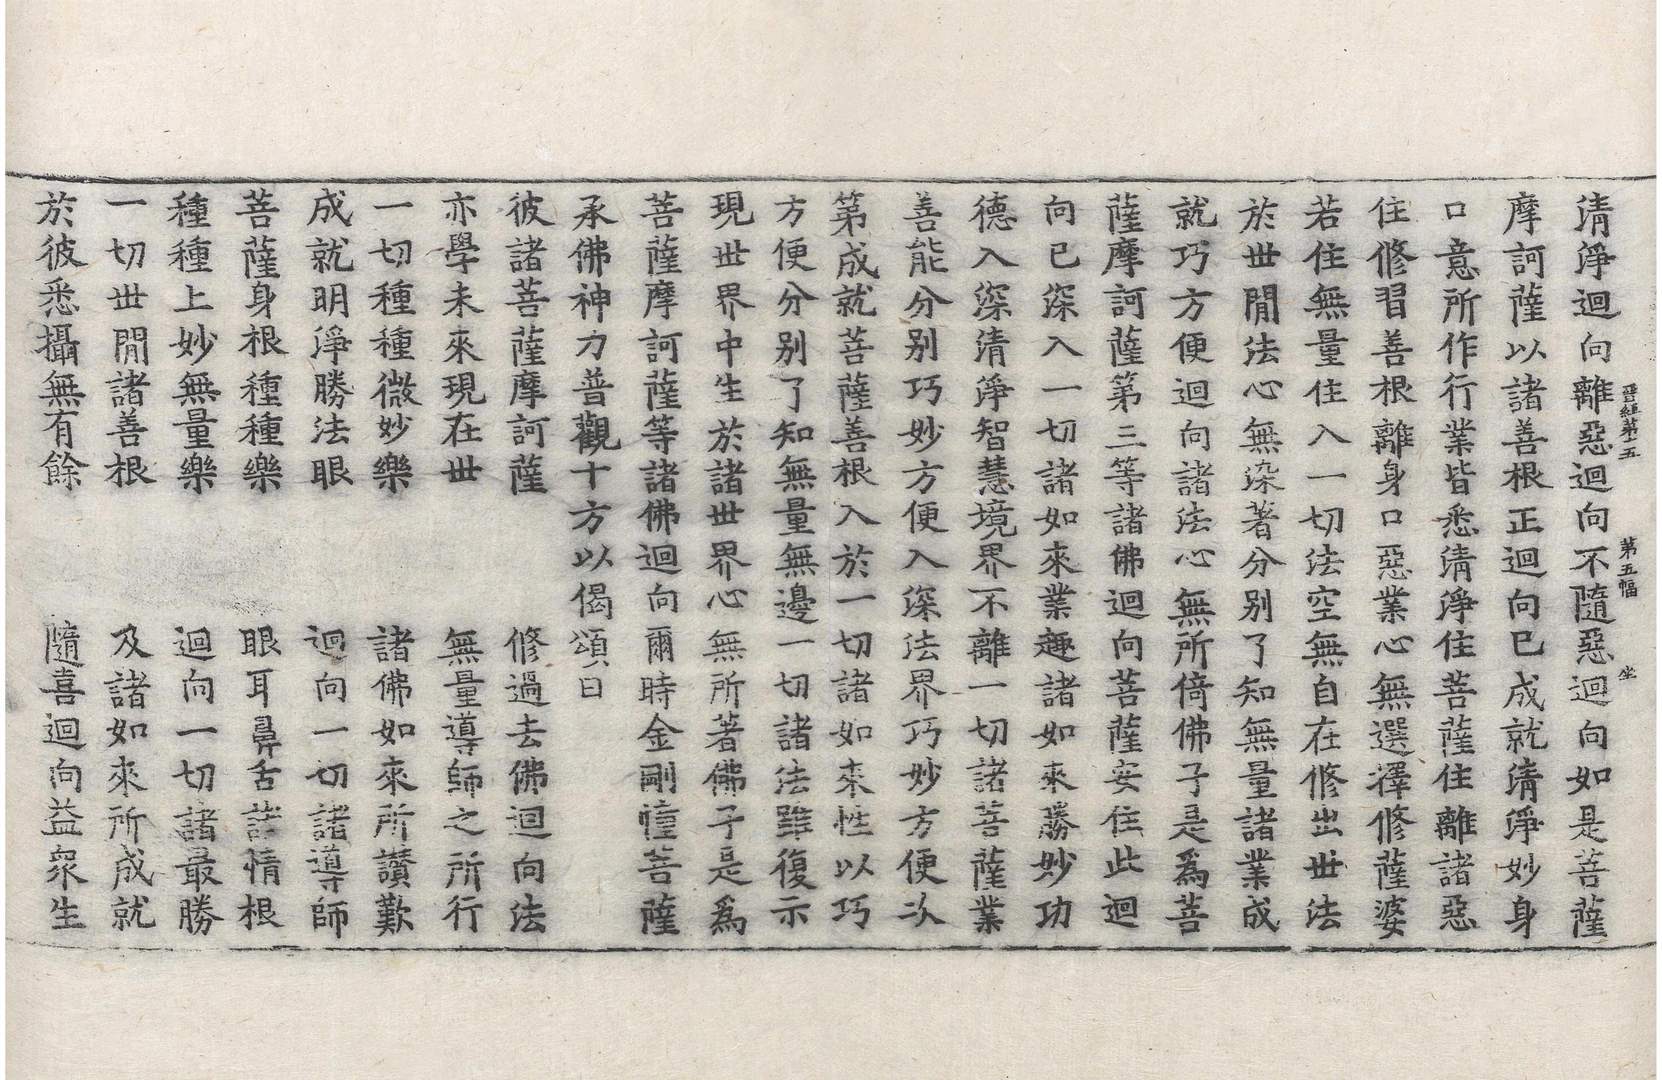 晉經第十五 第五幅 坐
清淨迴向離惡迴向不隨惡迴向如是菩薩
摩訶薩以諸善根正迴向已成就清淨妙身
口意所作行業皆悉清淨住菩薩住離諸惡
住修習善根離身口惡業心無選擇修薩婆
若住無量住入一切法空無自在修出世法
於世閒法心無染著分别了知無量諸業成
就巧方便迴向諸法心無所倚佛子是爲菩
薩摩訶薩第三等諸佛迴向菩薩安住此迴
向已深入一切諸如來業趣諸如來勝妙功
德入深清淨智慧境界不離一切諸菩薩業
善能分别巧妙方便入深法界巧妙方便次
第成就菩薩善根入於一切諸如来性以巧
方便分别了知無量無邊一切諸法雖復示
現世界中生於諸世界心無所著佛子是爲
菩薩摩訶薩等諸佛迴向爾時金剛幢菩薩
承佛神力普觀十方以偈頌曰
彼諸菩薩摩訶薩 修過去佛迴向法
亦學未來現在世 無量導師之所行
一切種種微妙樂 諸佛如來所讃歎
成就明淨勝法眼 迴向一切諸導師
菩薩身根種種樂 眼耳鼻舌諸情根
種種上妙無量樂 迴向一切諸最勝
一切世閒諸善根 及諸如來所成就
於彼悉攝無有餘 隨喜迴向益衆生